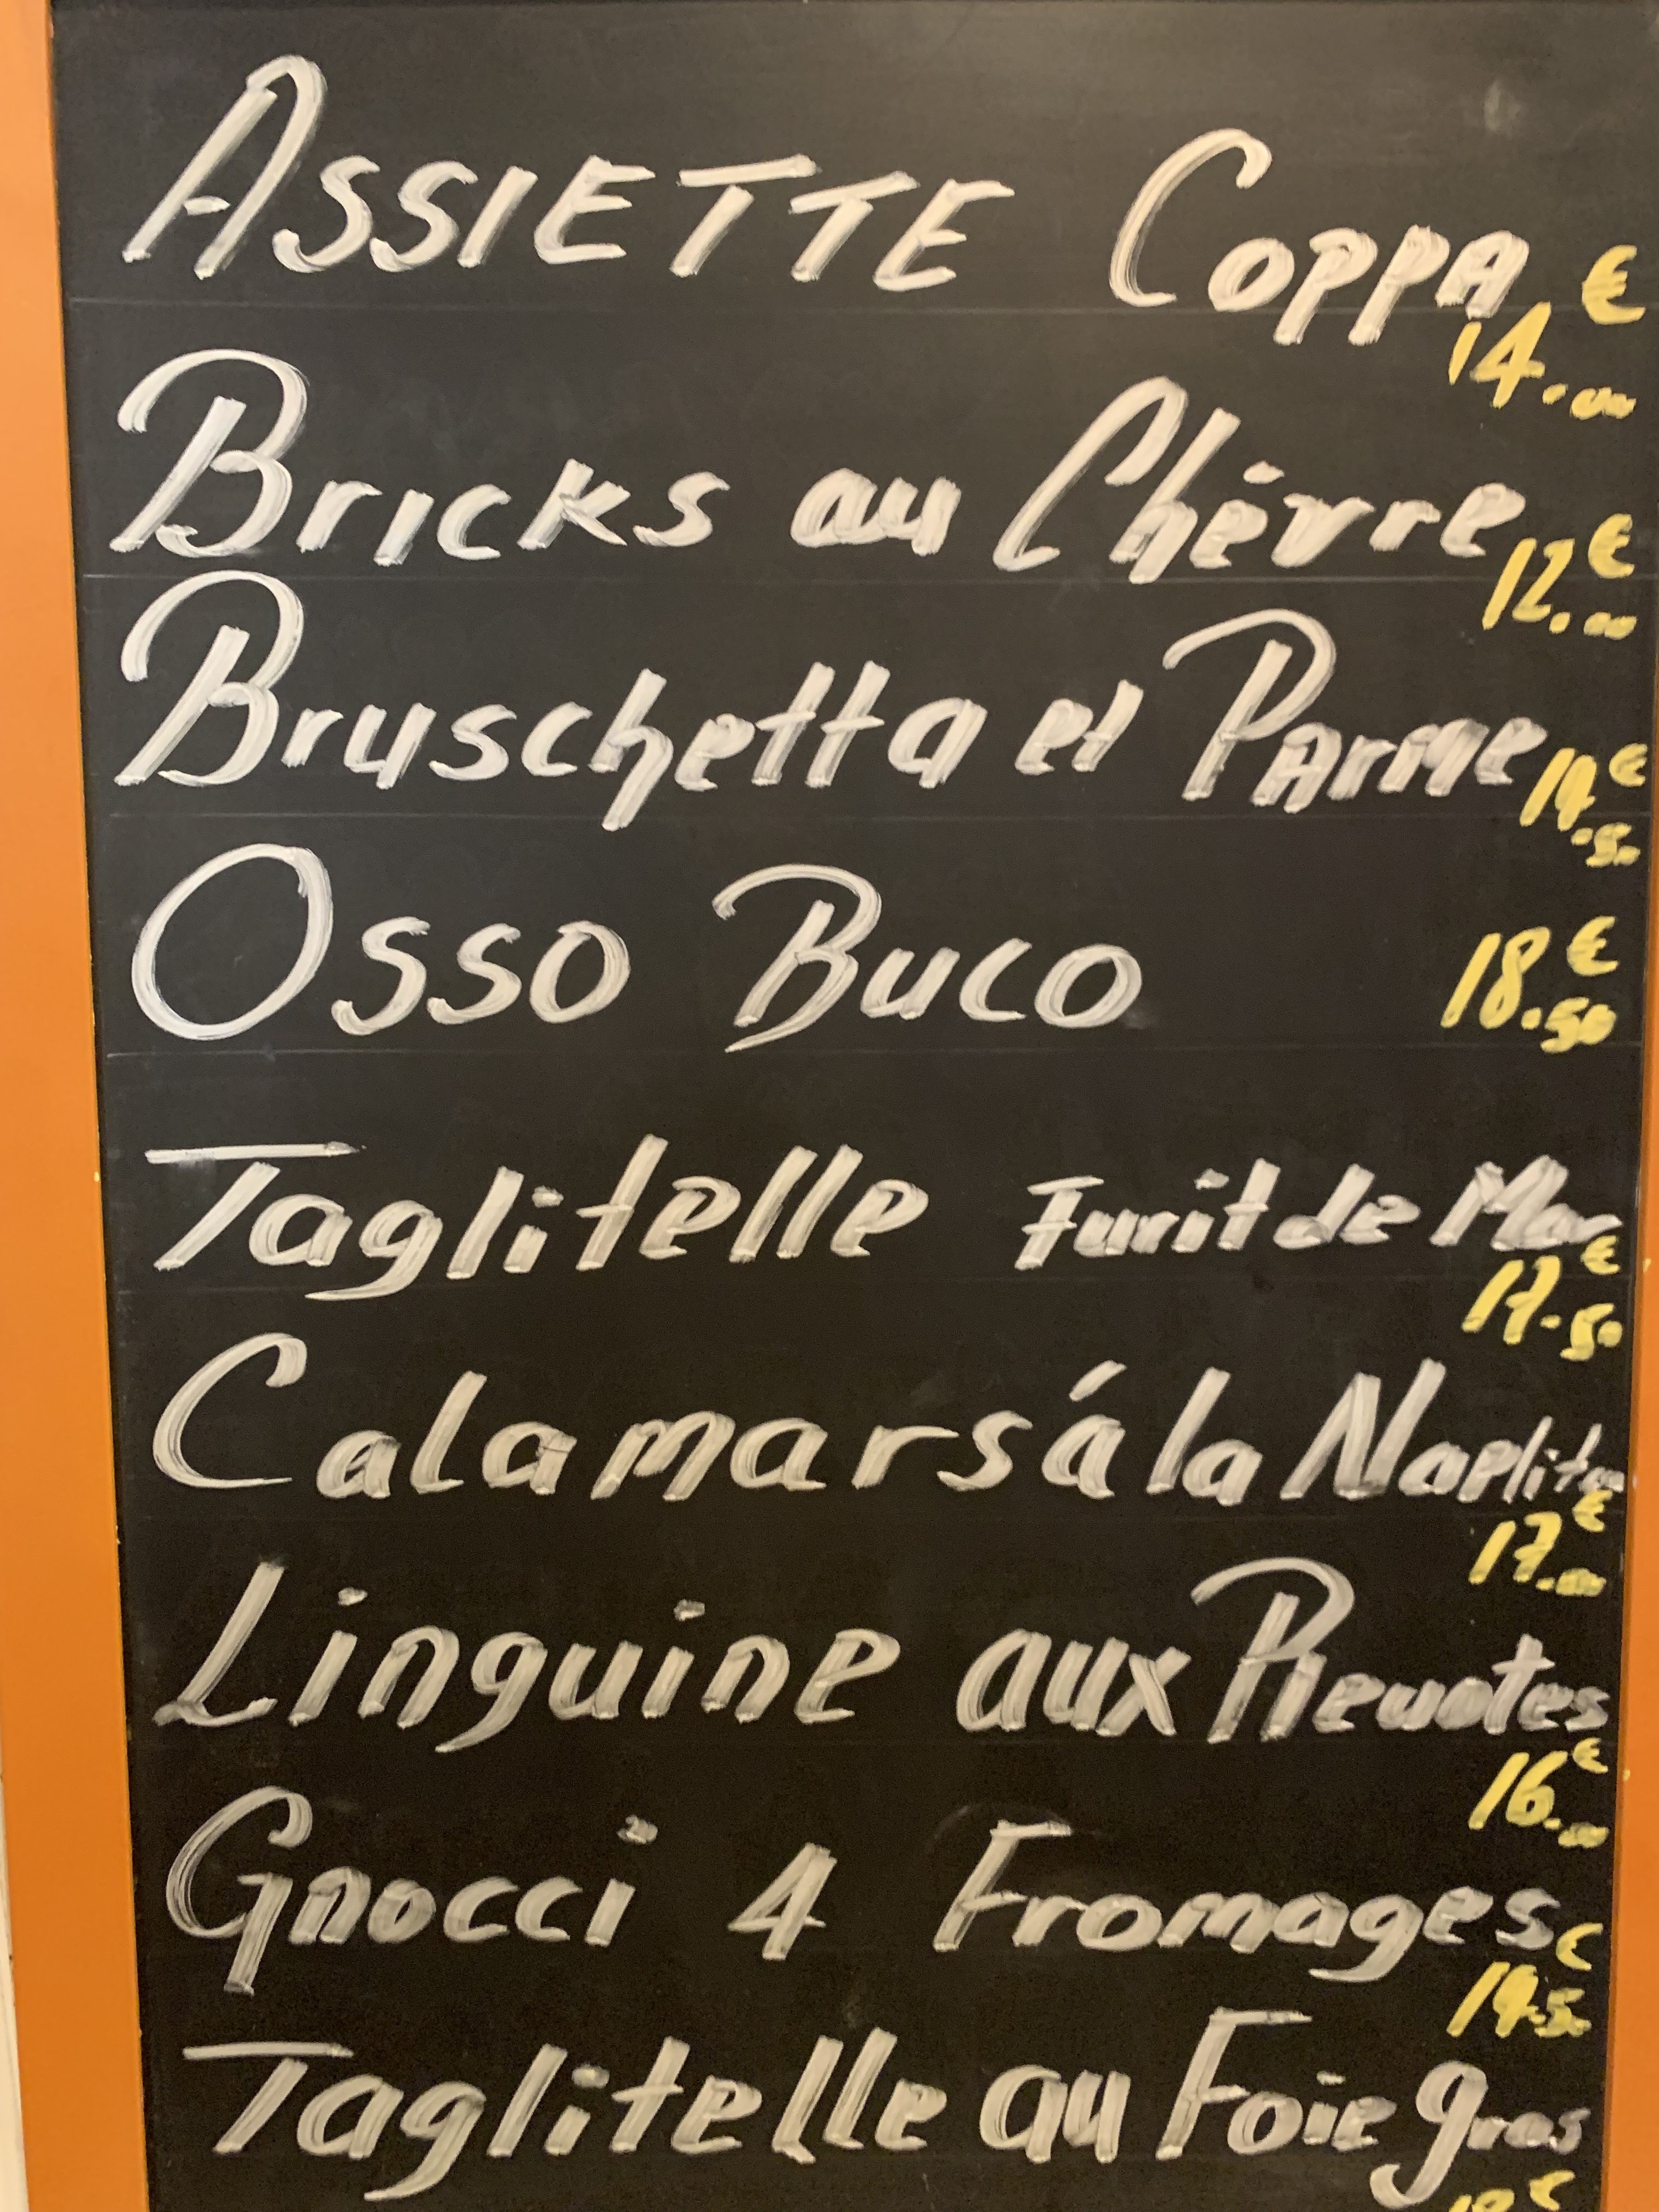 ASSIETTE COPPA €
14.00
Bricks au Chévre €
12.00
Bruschetta et PArme 14€
.50
Osso Buco 18.€
50
Taglitelle Furit de Mar
17.€50
Calamars á la Naplitan
17.€00
Linguine aux
16.€00
Gnocci 4 Fromages €
14.50
Taglitelle au Foie gras
€